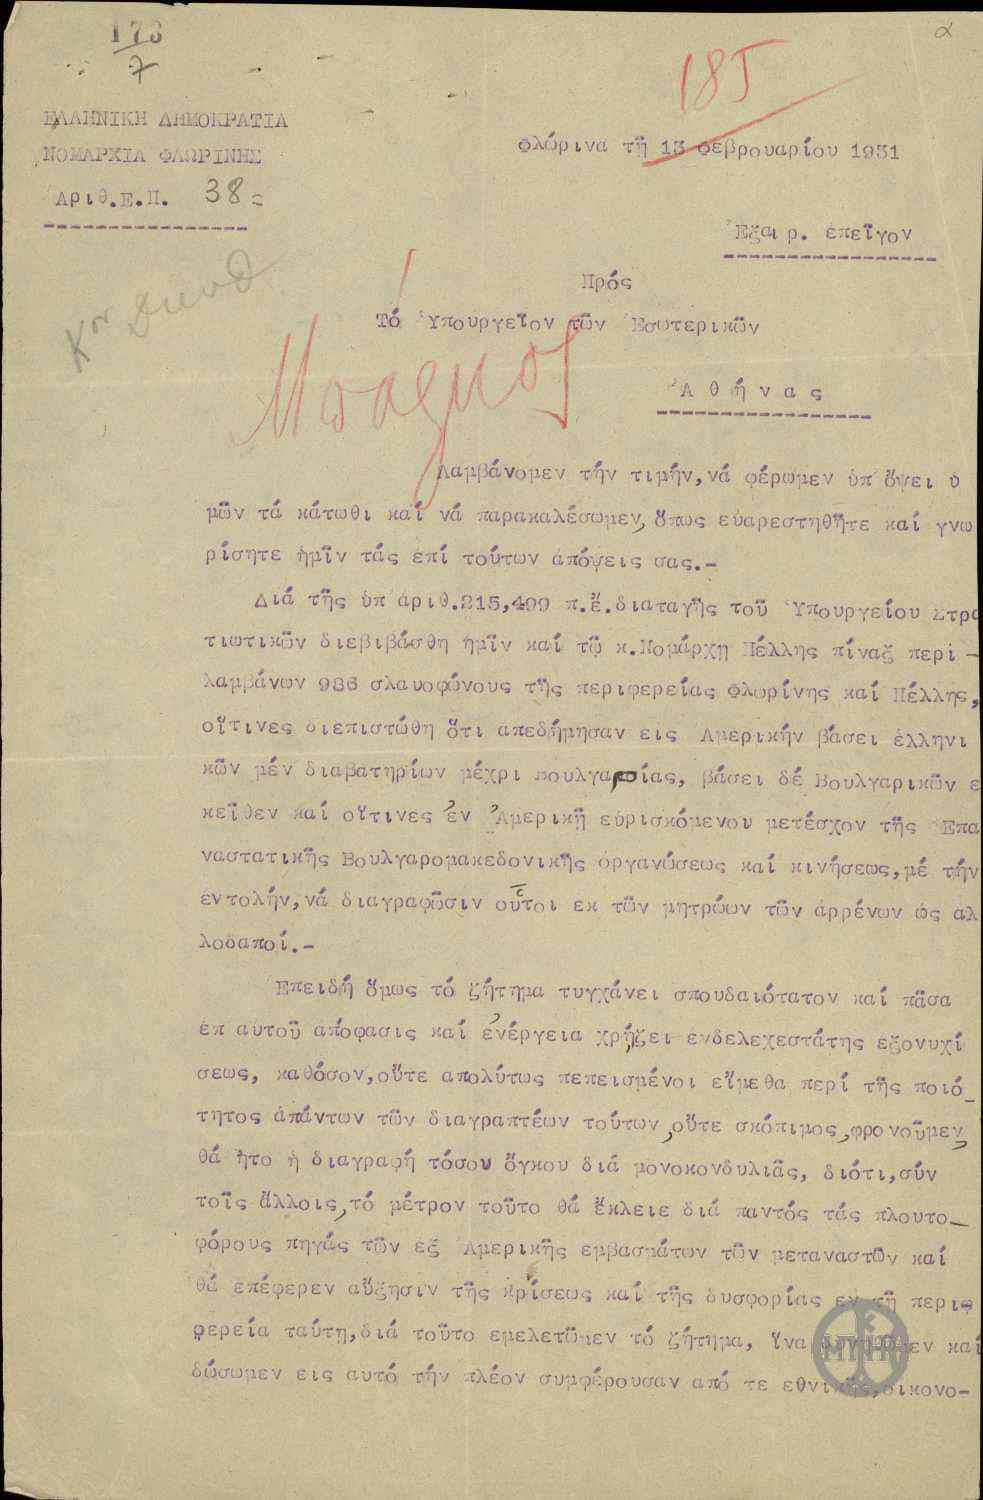 173
7
α
18Γ
ΕΛΛΗΝΙΚΗ ΔΗΜΟΚΡΑΤΙΑ
ΝΟΜΑΡΧΙΑ ΦΛΩΡΙΝΗΣ
Ἀριθ.Ε.Π. 38
Φλώρινα τῇ 13 Φεβρουαρίου 1931
Ἐξαιρ. ἐπεῖγον
Πρός
Τό Ὑπουργεῖον τῶν Ἐσωτερικῶν
Ἀθήνας
Λαμβάνομεν τήν τιμήν,νά φέρωμεν ὑπ ὄψει ὑ
μῶν τά κάτωθι καί νά παρακαλέσωμεν, ὅπως εὐαρεστηθῆτε καί γνω
ρίσητε ἡμῖν τάς ἐπί τούτων ἀπόψεις σας.-
Διά τῆς ὑπ ἀριθ.215,499 π.ἔ.διαταγῆς τοῦ Ὑπουργείου Στρα
τιωτικῶν διεβιβάσθη ἡμῖν καί τῷ κ.Νομάρχῃ Πέλλης πίναξ περι -
λαμβάνων 986 σλαυοφώνους τῆς περιφερείας Φλωρίνης καί Πέλλης,
οἵτινες διεπιστώθη ὅτι ἀπεδήμησαν εἰς Ἀμερικήν βάσει ἑλληνι
κῶν μέν διαβατηρίων μέχρι Βουλγαρίας, βάσει δέ Βουλγαρικῶν ἐ
κεῖθεν καί οἵτινες ἐν Ἀμερικῇ εὑρισκόμενου μετέσχον τῆς Ἐπα
ναστατικῆς Βουλγαρομακεδονικῆς ὀργανώσεως καί κινήσεως,μέ τήν
ἐντολήν,νά διαγραφῶσιν οὗτοι ἐκ τῶν μητρώων τῶν ἀρρένων ὡς ἀλ
λοδαποί.-
Ἐπειδή ὅμως τό ζήτημα τυγχάνει σπουδαιότατον καί πᾶσα
ἐπ αὐτοῦ ἀπόφασις καί ἐνέργεια χρῄζει ἐνδελεχεστάτης ἐξονυχί
σεως, καθόσον,οὔτε ἀπολύτως πεπεισμένοι εἴμεθα περί τῆς ποιό_
τητος ἁπάντων τῶν διαγραπτέων τούτων,οὔτε σκόπιμος,φρονοῦμεν,
θά ἦτο ἡ διαγραφή τόσου ὄγκου διά μονοκονδυλιᾶς, διότι,σύν
τοῖς ἄλλοις,τό μέτρον τοῦτο θά ἔκλειε διά παντός τάς πλουτο_
φόρους πηγάς τῶν ἐξ Ἀμερικῆς ἐμβασμάτων τῶν μεταναστῶν καί
θά ἐπέφερεν αὔξησιν τῆς κρίσεως καί τῆς δυσφορίας ἐν τῇ περιφ
φερείᾳ ταύτῃ,διά τοῦτο ἐμελετῶμεν τό ζήτημα, ἵνα καί
δώσωμεν εἰς αὐτό τήν πλέον συμφέρουσαν ἀπό τε ἐθνικῆς,οἰκονο-